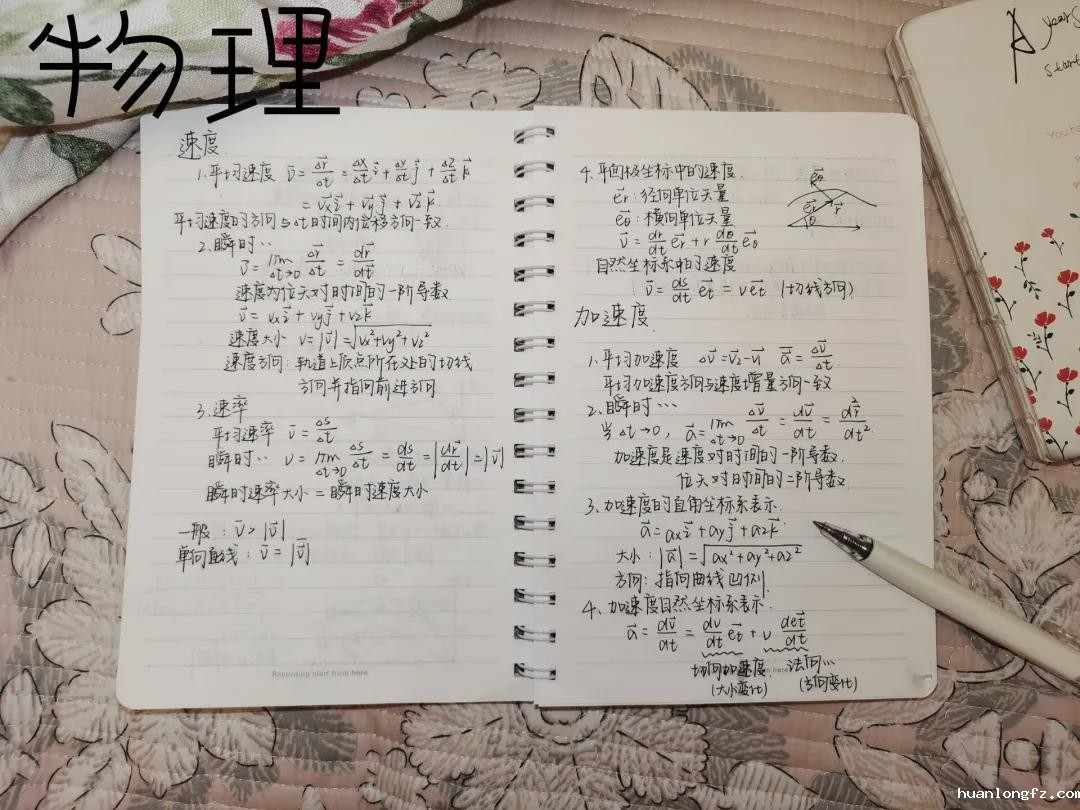 物理
速度
1.平均速度 v̄=Δr⃗/Δt=Δx/Δt i⃗+Δy/Δt j⃗+Δz/Δt k⃗
=v̄x i⃗+v̄y j⃗+v̄z k⃗
平均速度的方向与Δt时间内位移方向一致.
2.瞬时··
v⃗=lim Δt→0 Δr⃗/Δt=dr⃗/dt
速度为位矢对时间的一阶导数
v⃗=vx i⃗+vy j⃗+vz k⃗
速度大小 v=|v⃗|=√(vx²+vy²+vz²)
速度方向:轨道上质点所在处的切线
方向并指向前进方向
3.速率
平均速率 v̄=Δs/Δt
瞬时·· v=lim Δt→0 Δs/Δt=ds/dt=|dr⃗/dt|=|v⃗|
瞬时速率大小=瞬时速度大小
一般:v̄>|v̄⃗|
单向直线:v̄=|v̄⃗|
Recording start from here
4.平面极坐标中的速度.
e⃗r:径向单位矢量
e⃗θ:横向单位矢量
v⃗=dr/dt e⃗r+r dθ/dt e⃗θ
e⃗θ
e⃗r r⃗
θ
自然坐标系中的速度
v⃗=ds/dt e⃗t=v e⃗t (切线方向)
加速度.
1.平均加速度 Δv⃗=v⃗2-v⃗1 a̅⃗=Δv⃗/Δt
平均加速度方向与速度增量方向一致
2.瞬时···
当Δt→0, a⃗=lim Δt→0 Δv⃗/Δt=dv⃗/dt=d²r⃗/dt².
加速度是速度对时间的一阶导数.
位矢对时间的二阶导数.
3.加速度的直角坐标系表示.
a⃗=ax i⃗+ay j⃗+az k⃗
大小:|a⃗|=√(ax²+ay²+az²)
方向:指向曲线凹侧
4.加速度自然坐标系表示.
a⃗=dv⃗/dt=dv/dt e⃗t+v de⃗t/dt
切向加速度 法向···
(大小变化) (方向变化)
m here
A years
start
huanlongfz.com